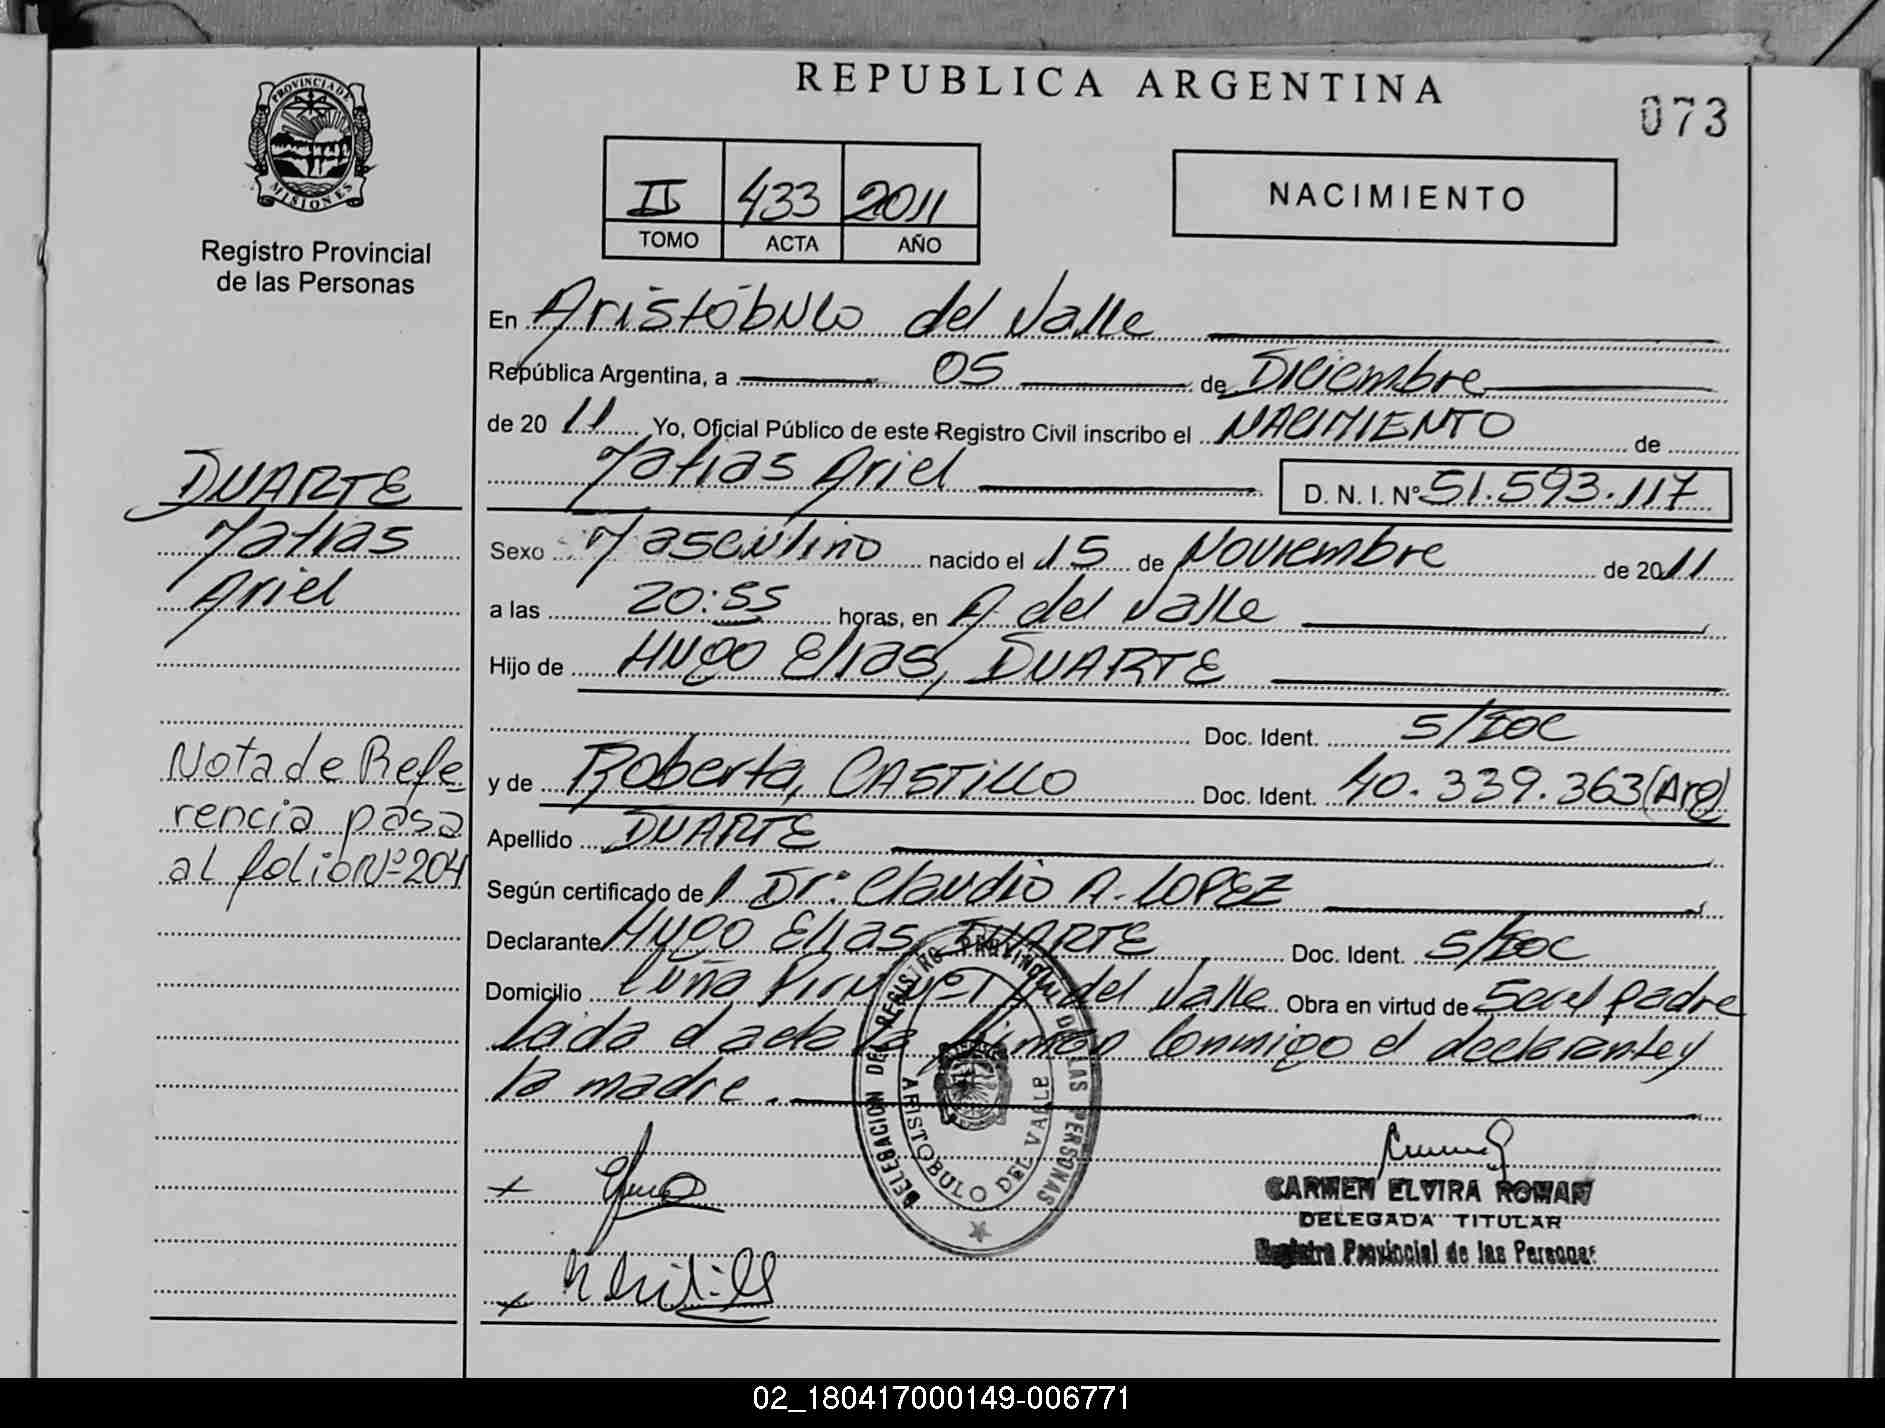 PROVINCIA DE
MISIONES
Registro Provincial
de las Personas
DUARTE
Matias
Ariel
Nota de Refe
rencia pasa
al folio Nº 204
REPUBLICA ARGENTINA
073
II 433 2011
TOMO ACTA AÑO
NACIMIENTO
En Aristóbulo del Valle
República Argentina, a 05 de Diciembre
de 2011 Yo, Oficial Público de este Registro Civil inscribo el NACIMIENTO de
Matias Ariel D. N. I. Nº 51.593.117
Sexo Masculino nacido el 15 de Noviembre de 2011
a las 20:55 horas, en A. del Valle
Hijo de Hugo Elias, DUARTE
Doc. Ident. S/DOC
y de Roberta, CASTILLO Doc. Ident. 40.339.363 (Arg)
Apellido DUARTE
Según certificado de Dr. Claudio A. LOPEZ
Declarante Hugo Elias, DUARTE Doc. Ident. S/DOC
Domicilio del Valle Obra en virtud de Ser el padre
Leida el acta la firman conmigo el declarante y
la madre.
DELEGACION DEL REGISTRO PROVINCIAL DE LAS PERSONAS
ARISTOBULO DEL VALLE
CARMEN ELVIRA ROMAN
DELEGADA TITULAR
Registro Provincial de las Personas
02_180417000149-006771